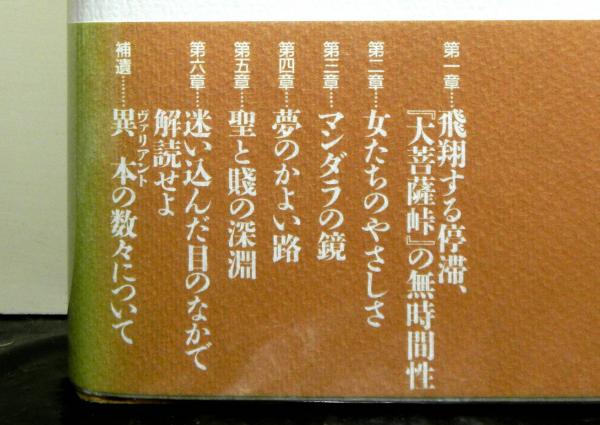 第一章…飛翔する停滞、
『大菩薩峠』の無時間性
第二章…女たちのやさしさ
第三章…マンダラの鏡
第四章…夢のかよい路
第五章…聖と賤の深淵
第六章…迷い込んだ目のなかで
解読せよ
ヴァリアント
補遺……異、本の数々について